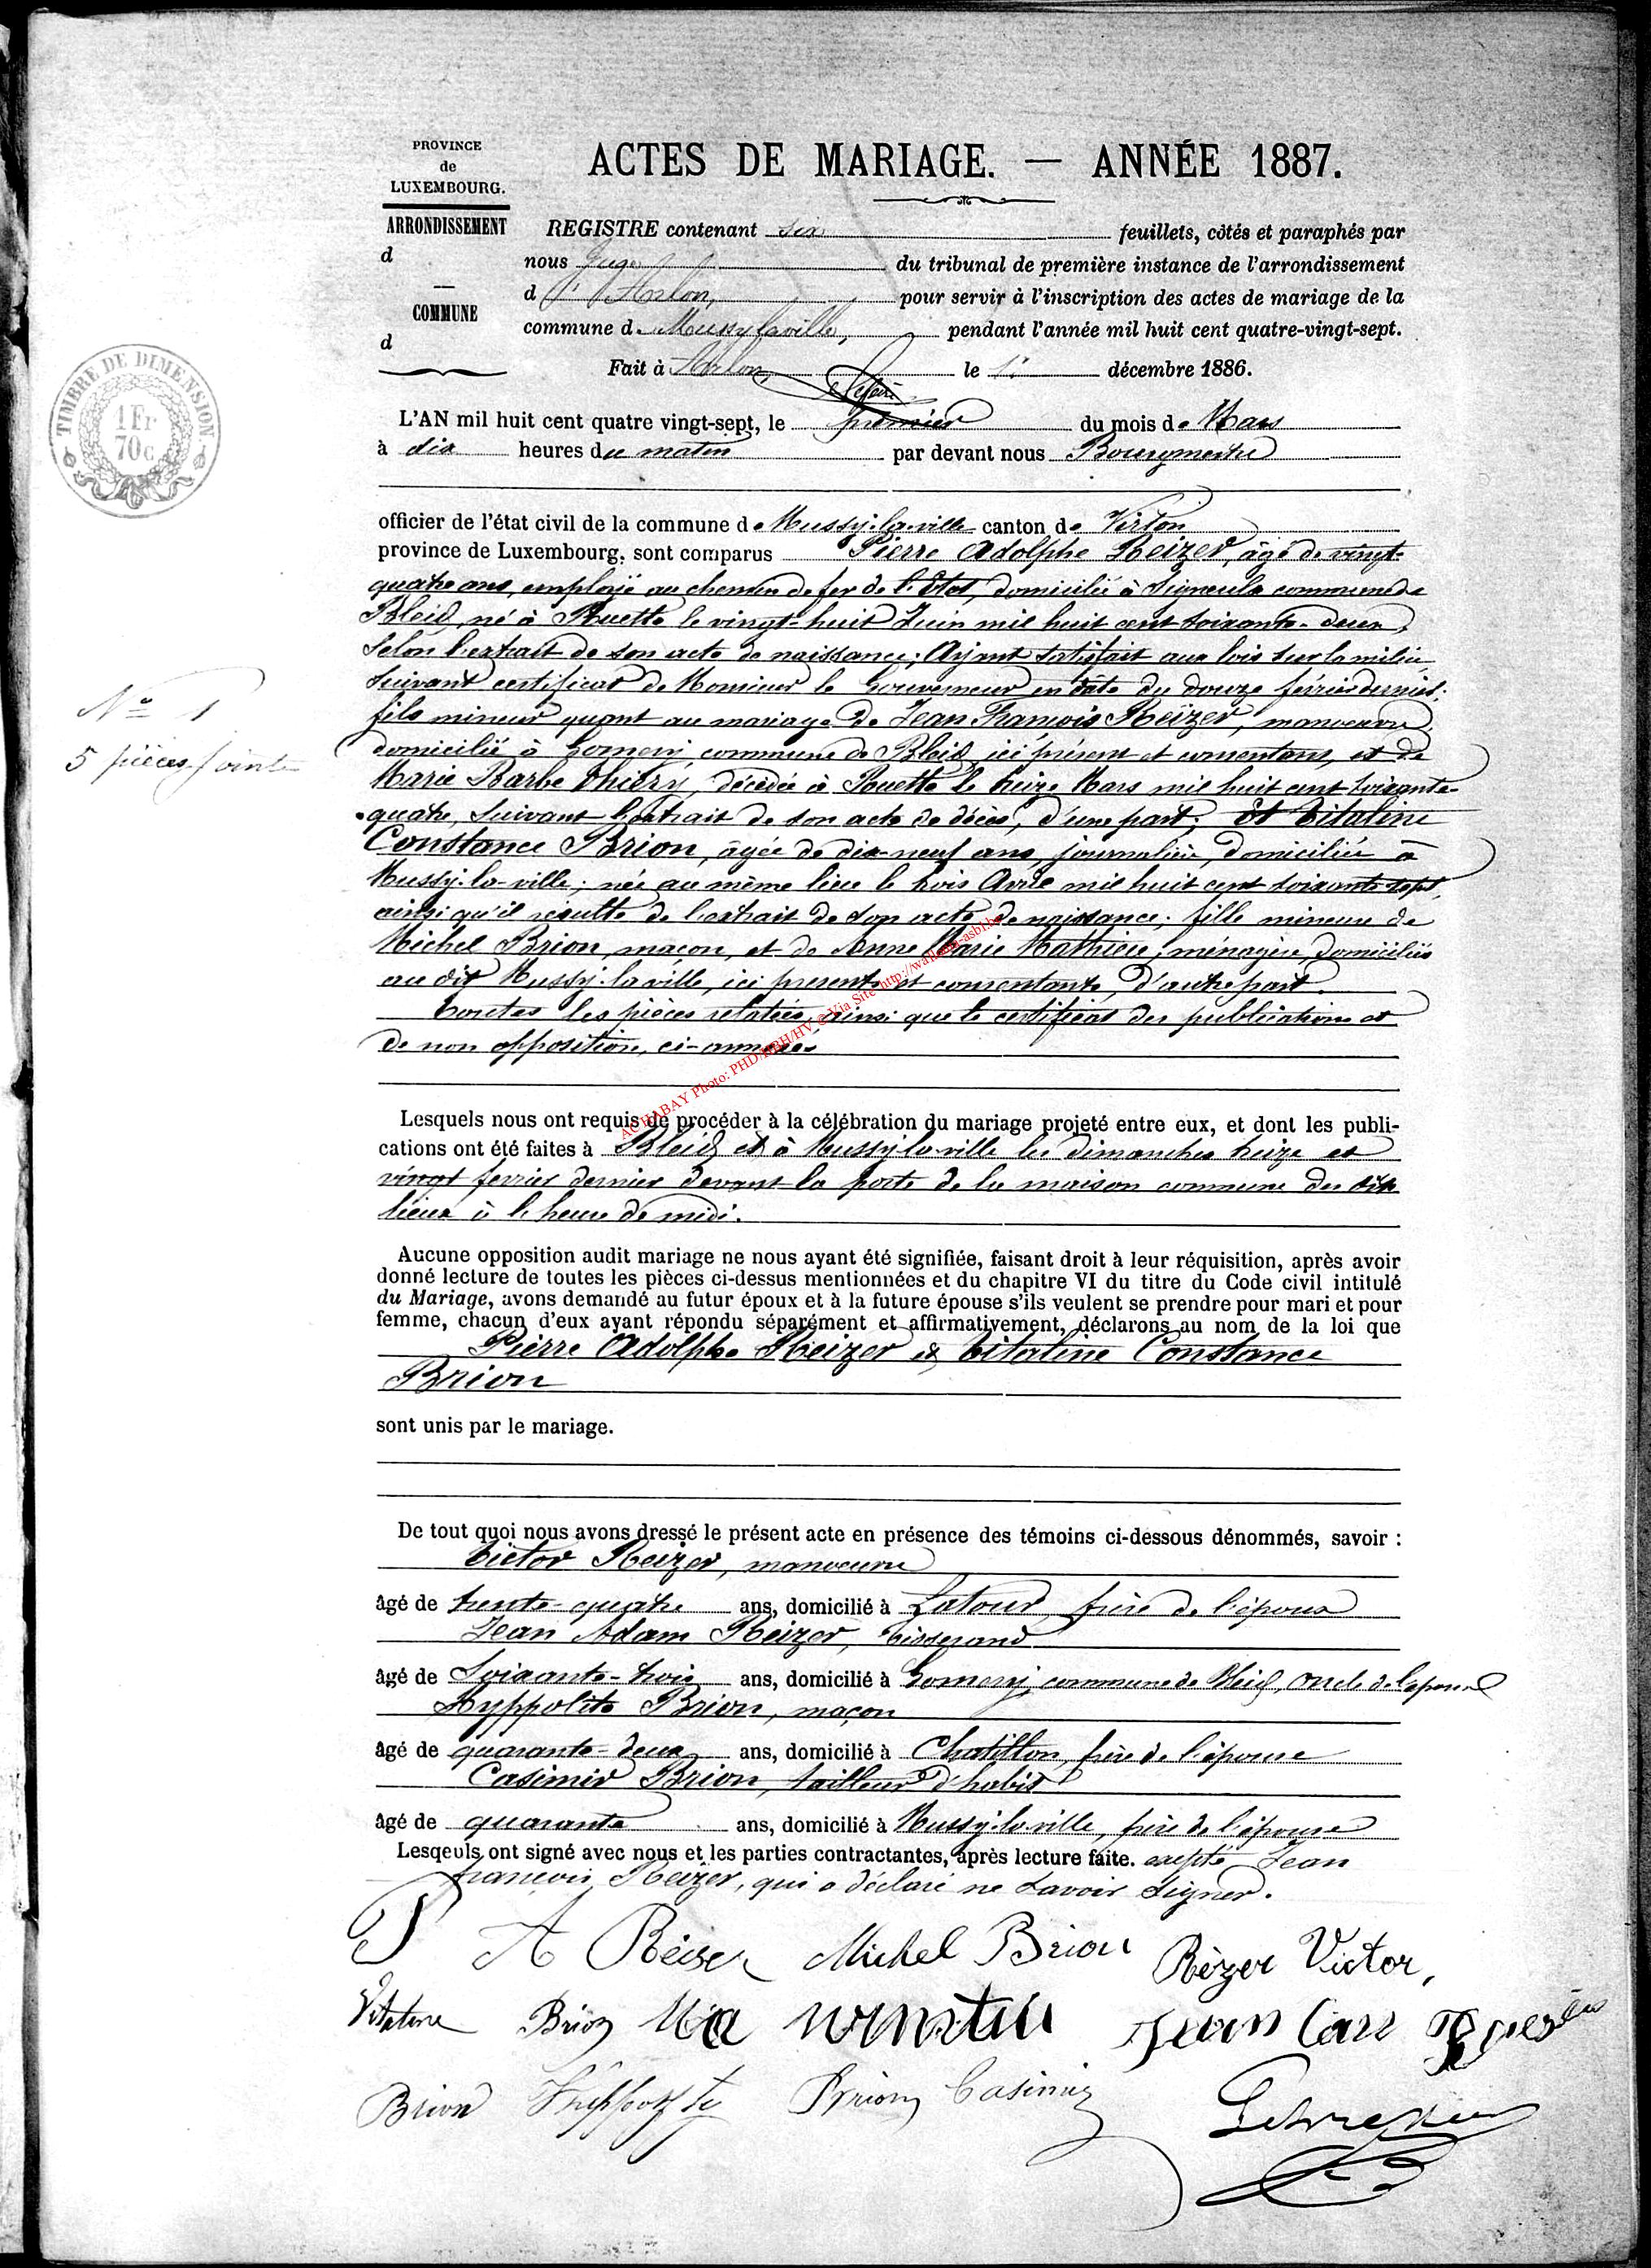 PROVINCE
de
LUXEMBOURG.
ARRONDISSEMENT
d
COMMUNE
d
ACTES DE MARIAGE. — ANNÉE 1887.
REGISTRE contenant six feuillets, côtés et paraphés par
nous Juge du tribunal de première instance de l'arrondissement
d'Arlon, pour servir à l'inscription des actes de mariage de la
commune de Mussy-la-ville, pendant l'année mil huit cent quatre-vingt-sept.
Fait à Arlon, le décembre 1886.
TIMBRE DE DIMENSION
1 Fr
70 c
L'AN mil huit cent quatre vingt-sept, le premier du mois de Mars
à dix heures du matin par devant nous Bourgmestre
officier de l'état civil de la commune de Mussy-la-ville canton de Virton
province de Luxembourg, sont comparus Pierre Adolphe Reizer, âgé de vingt-
quatre ans, employé au chemin de fer de l'Etat, domicilié à Signeulx commune de
Bleid, né à Ruette le vingt-huit Juin mil huit cent soixante-deux,
selon l'extrait de son acte de naissance; Ayant satisfait aux lois sur la milice
suivant certificat de Monsieur le Gouverneur en date du douze février dernier;
N° 1
5 pièces jointes
fils mineur quant au mariage de Jean François Reizer, manoeuvre,
domicilié à Gomery commune de Bleid, ici présent et consentant, et de
Marie Barbe Thiéry, décédée à Ruette le treize Mars mil huit cent soixante-
quatre, suivant l'extrait de son acte de décès, d'une part; Et Vitaline
Constance Brion, âgée de dix-neuf ans, journalière, domiciliée à
Mussy-la-ville; née au même lieu le trois Avril mil huit cent soixante-sept,
ainsi qu'il résulte de l'extrait de son acte de naissance; fille mineure de
Michel Brion, maçon, et de Anne Marie Mathieu, ménagère, domiciliés
au dit Mussy-la-ville, ici présents et consentants, d'autre part.
Toutes les pièces relatées, ainsi que le certificat des publications et
de non opposition, ci-annexées
ACHABAY Photo: PHD/HBH/HV © Via Site http://wallonia-asbl.be
Lesquels nous ont requis de procéder à la célébration du mariage projeté entre eux, et dont les publi-
cations ont été faites à Bleid et à Mussy-la-ville les dimanches treize et
vingt fevrier dernier devant la porte de la maison commune des dits
lieux à l'heure de midi.
Aucune opposition audit mariage ne nous ayant été signifiée, faisant droit à leur réquisition, après avoir
donné lecture de toutes les pièces ci-dessus mentionnées et du chapitre VI du titre du Code civil intitulé
du Mariage, avons demandé au futur époux et à la future épouse s'ils veulent se prendre pour mari et pour
femme, chacun d'eux ayant répondu séparément et affirmativement, déclarons au nom de la loi que
Pierre Adolphe Reizer & Vitaline Constance
Brion
sont unis par le mariage.
De tout quoi nous avons dressé le présent acte en présence des témoins ci-dessous dénommés, savoir :
Victor Reizer, manoeuvre
âgé de trente-quatre ans, domicilié à Latour, frère de l'époux
Jean Adam Reizer, tisserand
âgé de Soixante-trois ans, domicilié à Gomery, commune de Bleid, oncle de l'époux
Hyppolite Brion, maçon
âgé de quarante-deux ans, domicilié à Chatillon, frère de l'épouse
Casimir Brion, tailleur d'habits
âgé de quarante ans, domicilié à Mussy-la-ville, frère de l'épouse
Lesqeuls ont signé avec nous et les parties contractantes, après lecture faite. excepté Jean
françois Reizer, qui a déclaré ne savoir signer.
P A Réiser Michel Brion Rézer Victor,
Vitaline Brion
Brion Hippolyte Brion Casimir